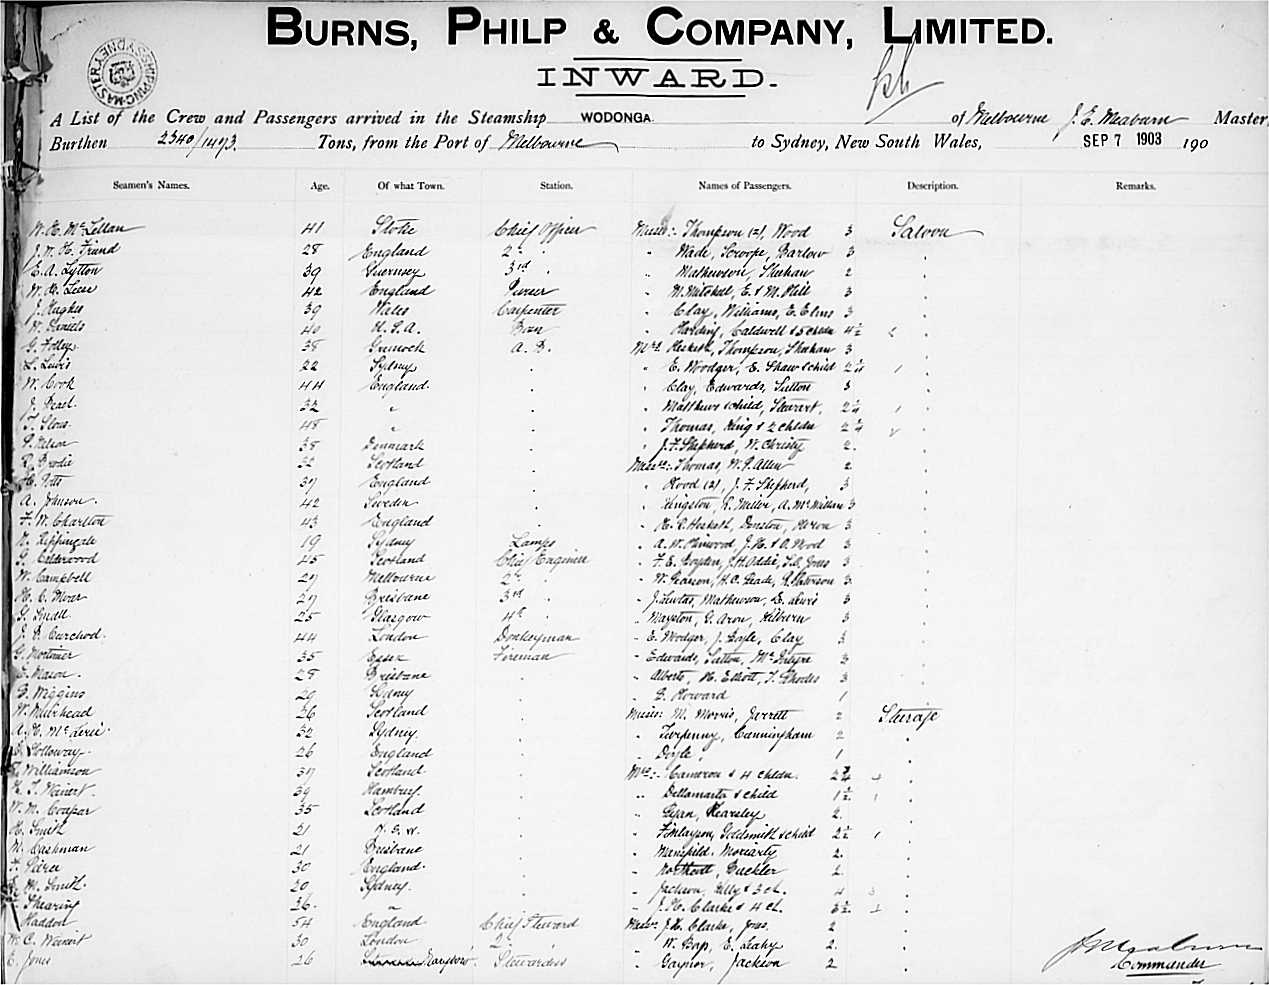 BURNS, PHILP & COMPANY, LIMITED.
INWARD.
SHIPPING MASTER SYDNEY
A List of the Crew and Passengers arrived in the Steamship WODONGA of Melbourne J. E. Meaburn Master,
Burthen 2340/1473 Tons, from the Port of Melbourne to Sydney, New South Wales, SEP 7 1903 190
Seamen's Names. Age. Of what Town. Station. Names of Passengers. Description. Remarks.
W. H. McLellan 41 Chief Officer Messrs:- Thompson (2), Wood 3 Saloon
28 England 2nd " Wade, Scroope, Barlow 3
E. A. Lytton 39 Guernsey 3rd " Mathewson, Sheehan 2
42 England Purser " M. Mitchell, E. & M. Hill 3
J. Hughes 39 Wales Carpenter " Clay, Williams, E. Elms 3
W. Daniels 40 U.S.A. " Harding, Caldwell & 5 chldn 4½
G. Folley 38 Greenock A. B. Mrs Hesketh, Thompson, Sheehan 3
L. Lewis 22 Sydney " E. Woodger, E. Shaw & child
W. Cook 44 England " Clay, Edwards, Sutton 3
J. 32 " " Matthews & child, Stewart,
T. 48 " " Thomas, King & 2 chldn
P. Nelson 38 Denmark " J. F. Shepherd, W. Christy 2
R. Brodie 32 Scotland Thomas, W. P. Allen 2
H. Potts 37 England " Hood (2), J. F. Shepherd, 3
A. Johnson 42 Sweden " Kingston, R. Miller, A. McWilliam 3
F. W. Charlton 43 England " H. R. Hesketh, Denston, Heron 3
19 Sydney Lamps " J. H. & O. Wood 3
G. Calderwood 45 Scotland Chief Engineer " F. E. Boyden, J. H. Addie, Jones 3
W. Campbell 27 Melbourne 2nd " W. Pearson, H. C. Slade, R. Paterson 3
H. C. Moar 27 Brisbane 3rd " Mathewson, E. Lewis 3
G. Small 25 Glasgow 4th " Mayston, G. Aron, Kilburn 3
J. P. Curchod 44 London Donkeyman " E. Wodger, J. Doyle, Clay 3
G. Mortimer 35 Essex Fireman " Edwards, Sutton, McIntyre 3
Mason 28 Brisbane " Alberto, H. Elliott, T. Rhodes 3
Wiggins 29 Sydney " Howard 1
W. Muirhead 36 Scotland Messrs M. Morris, Jerrett 2 Steerage
A. H. 32 Sydney " Twopenny, Cunningham 2
Holloway 26 England " Doyle, 1
Williamson 37 Scotland Mrs:- Cameron & 4 chldn.
39 Hamburg " Dellamarta & child 1½
W. M. 35 Scotland " Kearsley 2
H. Smith 21 N.S.W. " Finlayson, Goldsmith & child 2½
M. Cashman 21 Brisbane " Mansfield, Moriarty 2
F. 30 England " Northcott, Buckler 2
M. Smith 20 Sydney " Jackson, Kelly & 3 ch. 4
Shearing 36 " " J. H. Clarke & 4 ch.
Haddon 54 England Chief Steward J. H. Clarke, Jones 2
W. C. 30 London 2nd " W. Bap, E. Leahy 2
E. Jones 26 Stewardess " Gaynor, Jackson 2
J. Meaburn
Commander